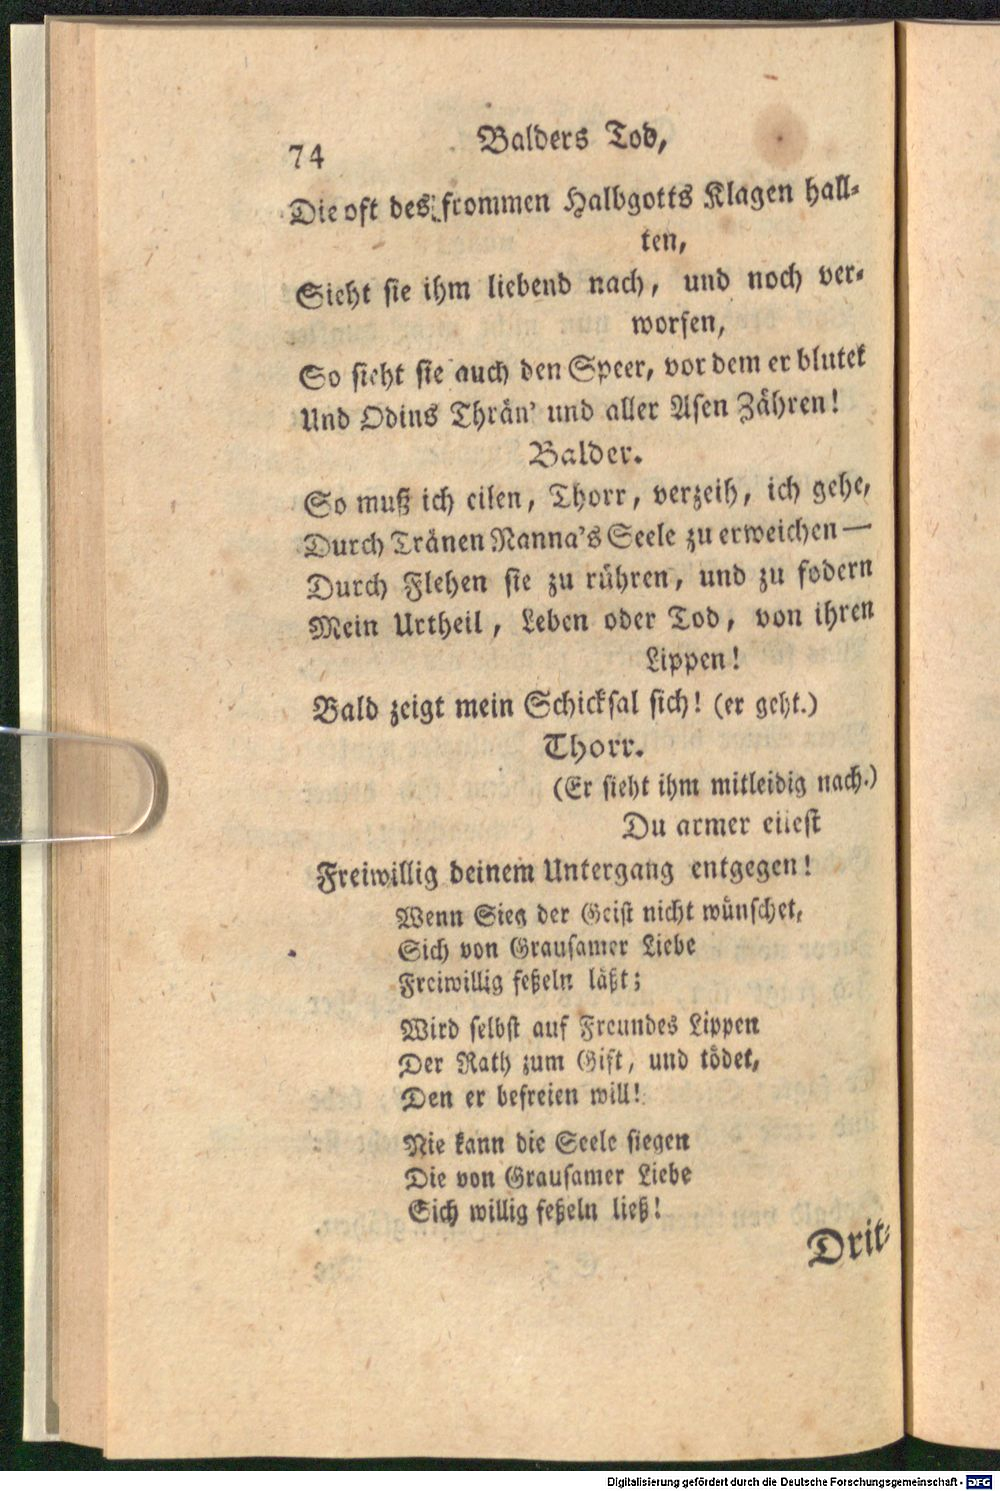 74
Balders Tod,
Die oft des frommen Halbgotts Klagen hall-
ten,
Sieht sie ihm liebend nach, und noch ver-
worfen,
So sieht sie auch den Speer, vor dem er blutet
Und Odins Thrän' und aller Asen Zähren!
Balder.
So muß ich eilen, Thorr, verzeih, ich gehe,
Durch Tränen Nanna's Seele zu erweichen—
Durch Flehen sie zu rühren, und zu fodern
Mein Urtheil, Leben oder Tod, von ihren
Lippen!
Bald zeigt mein Schicksal sich! (er geht.)
Thorr.
(Er sieht ihm mitleidig nach.)
Du armer eilest
Freiwillig deinem Untergang entgegen!
Wenn Sieg der Geist nicht wünschet,
Sich von Grausamer Liebe
Freiwillig feßeln läßt;
Wird selbst auf Freundes Lippen
Der Rath zum Gift, und tödet,
Den er befreien will!
Nie kann die Seele siegen
Die von Grausamer Liebe
Sich willig feßeln ließ!
Drit-
Digitalisierung gefördert durch die Deutsche Forschungsgemeinschaft - DFG